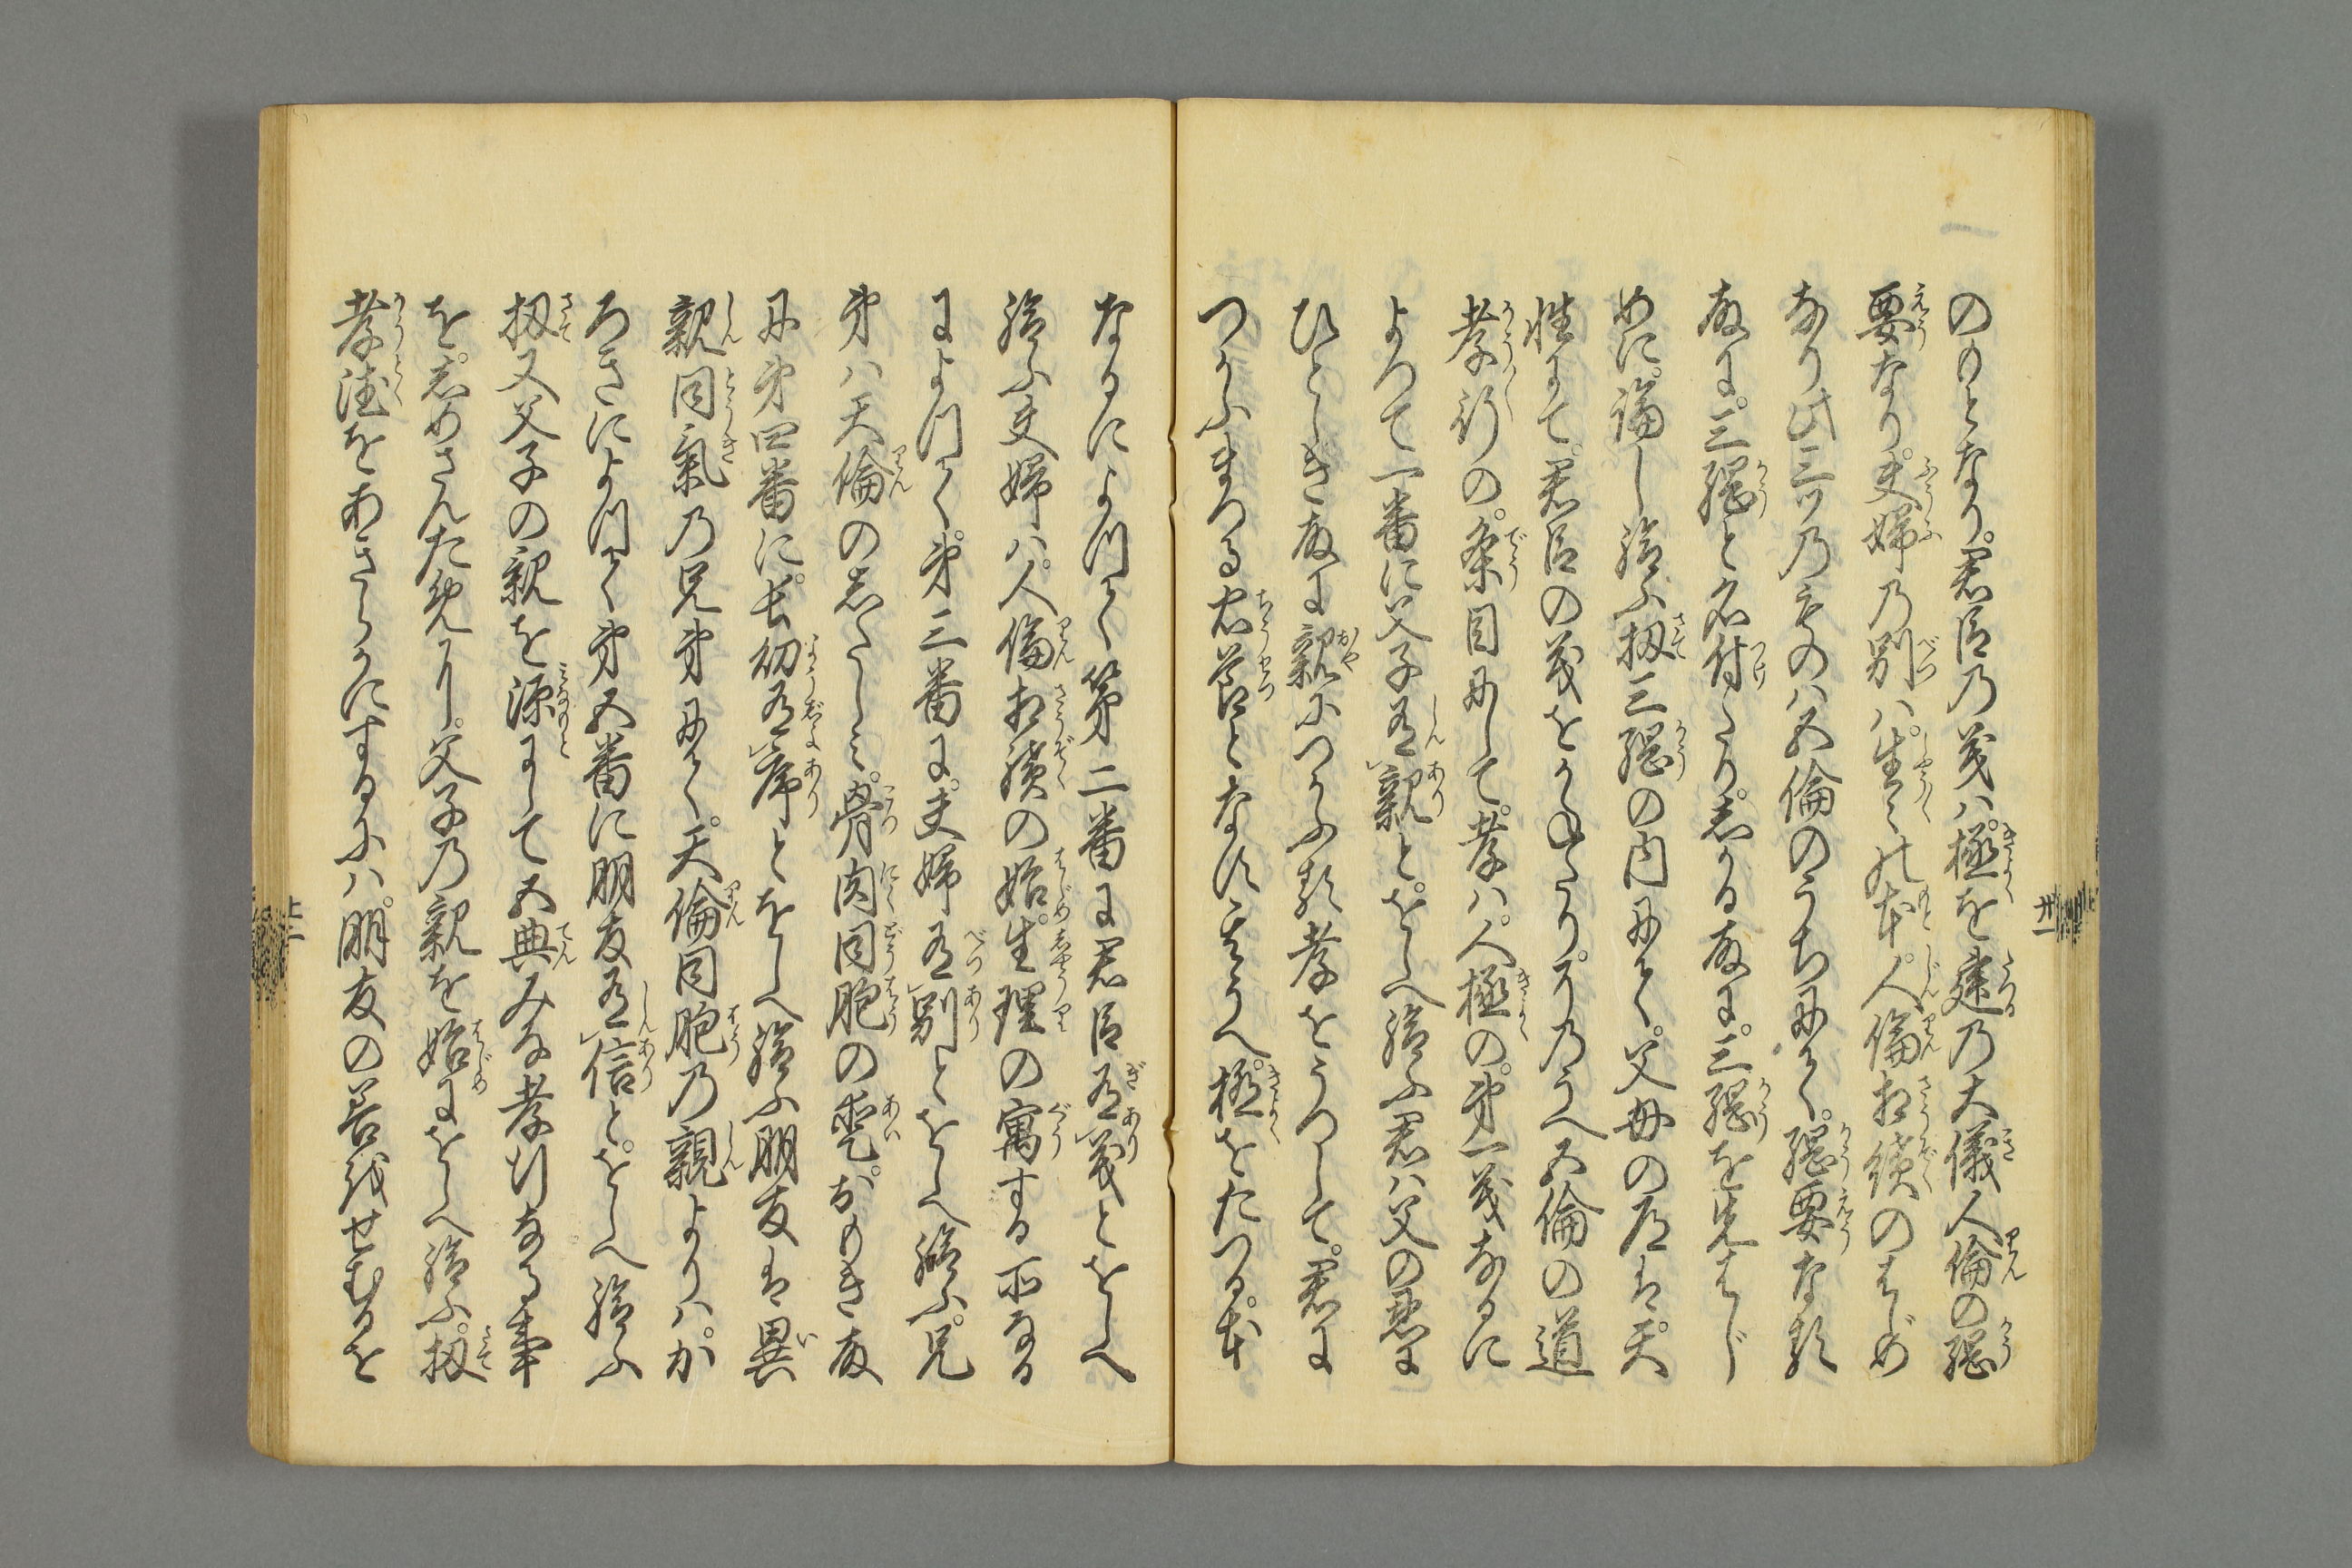 のもとなり。君臣乃義ハ。極を建乃大儀人倫の綱
要なり。夫婦乃別ハ。生々乃本。人倫相続のはじめ
なり此三ツ乃ものハ五倫のうちにて。綱要なる
故に。三綱と名付たり。しかる故に。三綱を先はじ
めに。論し給ふ扨三綱の内にて。父母の道は。天
性にて。君臣の義をかねたり。その上五倫の道
孝行の。条目にして。孝ハ。人極の。第一義なるに
よつて一番に父子有親と。をしへ給ふ君ハ父の恩に
ひとしき故に親につかふる孝をうつして。君に
つかふまつる忠節となす。そのうへ。極をたつる。本
なるによつて第二番に君臣有義とをしへ
給ふ夫婦ハ。人倫相続の始。生理の寓する所なる
によつて。第三番に。夫婦有別とをしへ給ふ。兄
弟ハ天倫の志たしミ。骨肉同胞の愛。おもき故
に第四番に。長幼有序とをしへ給ふ朋友は異
親同氣乃兄弟にて。天倫同胞乃親よりハ。か
ろきによつて第五番に朋友有信と。をしへ給ふ
扨又父子の親を源にして五典みな孝行なる事
を。しめさんため に。父子乃親を始にをしへ給ふ。扨
孝徳をあきらかにするにハ。朋友の善を せむるを
廿一
上二